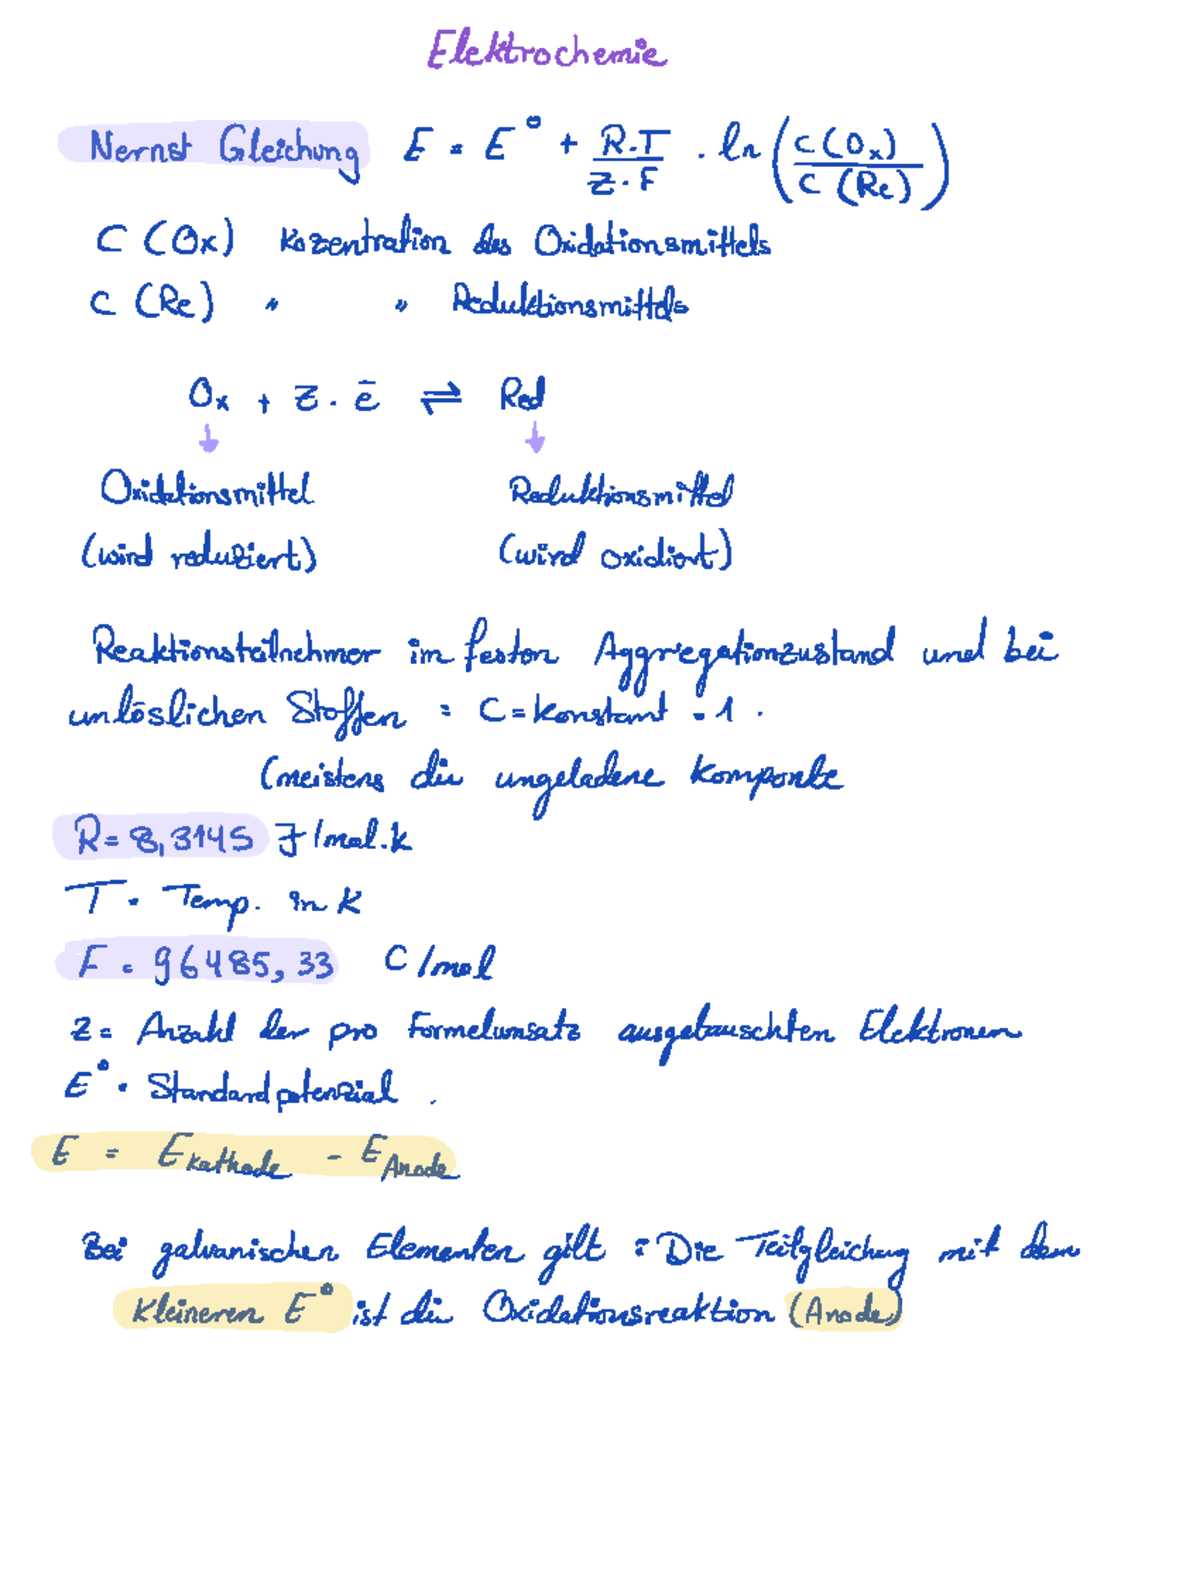 Elektrochemie
Nernst Gleichung E = E° + R.T / Z.F . ln ( C(Ox) / C (Re) )
C (Ox) Kozentration des Oxidationsmittels
C (Re) " " Reduktionsmittels
Ox + Z . e̅ ⇌ Red
↓ ↓
Oxidationsmittel Reduktionsmittel
(wird reduziert) (wird oxidiert)
Reaktionsteilnehmer im festen Aggregationzustand und bei
unlöslichen Stoffen = C = konstant = 1 .
(meistens die ungeladene Komponte
R = 8,3145 J/mol.K
T = Temp. in K
F = 96485,33 C/mol
Z = Anzahl der pro Formelumsatz ausgetauschten Elektronen
E° = Standardpotenzial .
E = E Kathode - E Anode
Bei galvanischen Elementen gilt : Die Teilgleichung mit dem
Kleineren E° ist die Oxidationsreaktion (Anode)